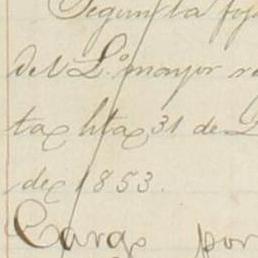 Segun la foj
del L.º mayor r
tas htas 31 de D
de 1853.
Cargo por